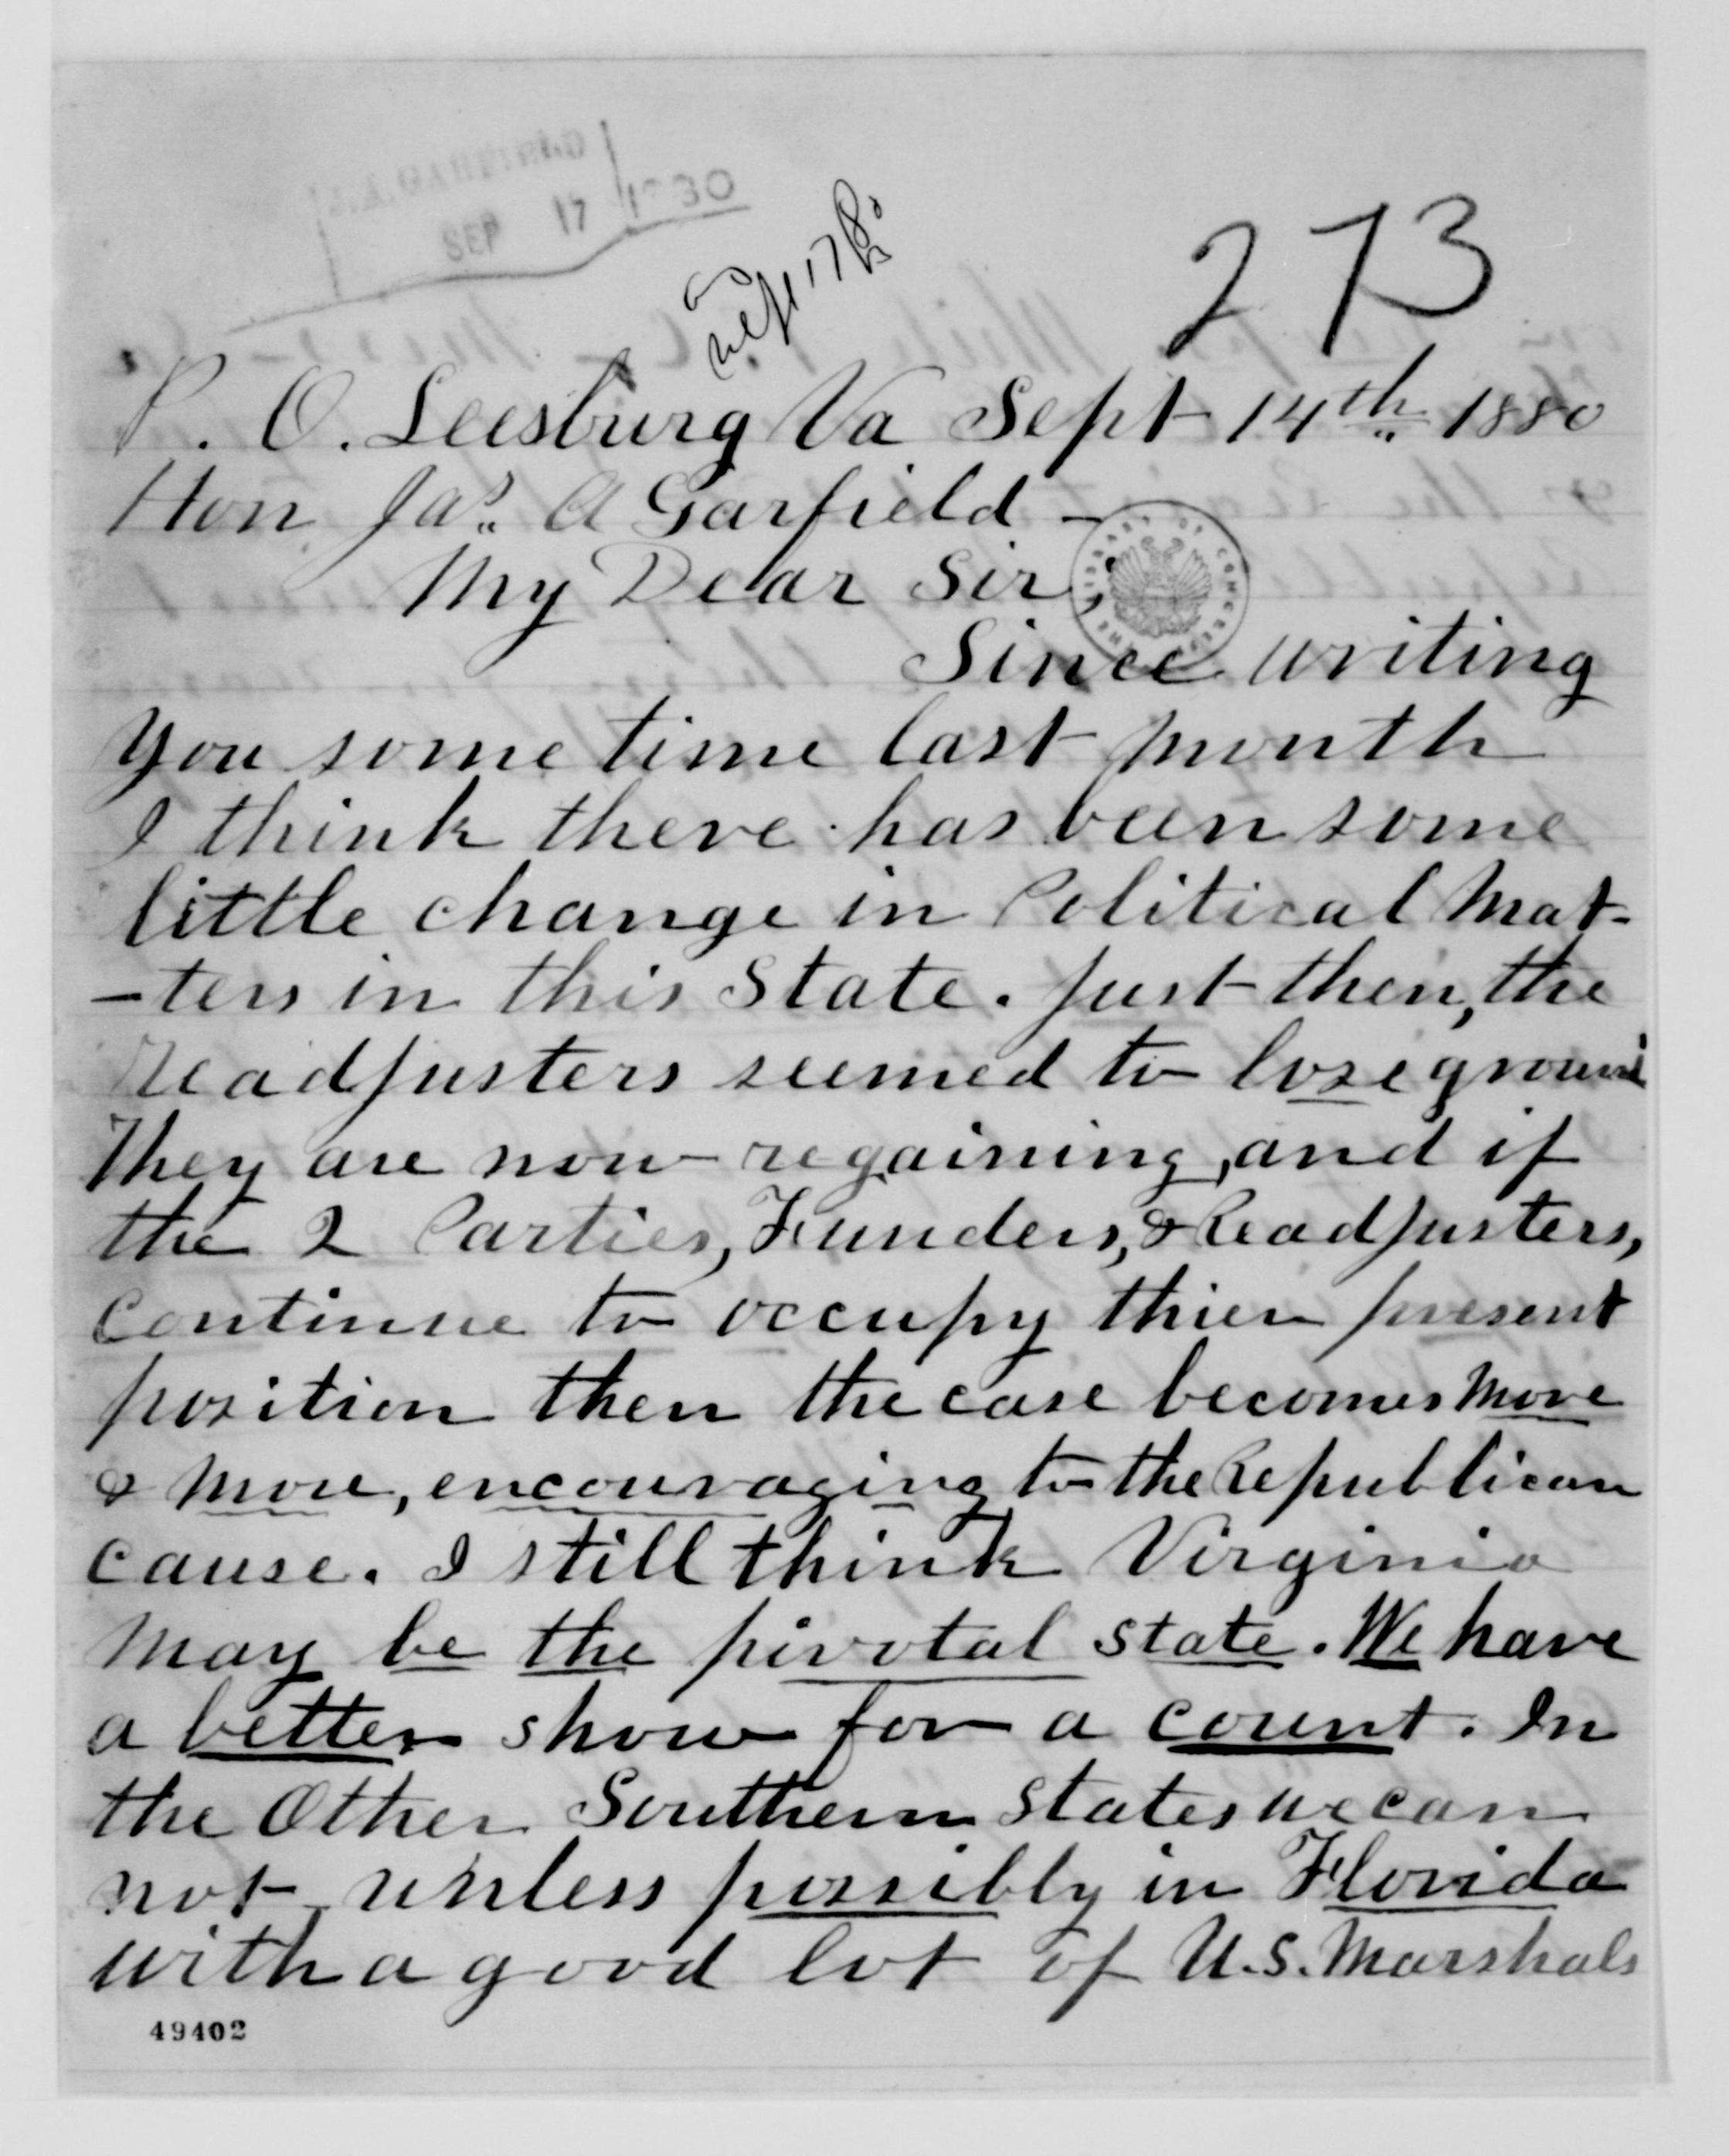 J.A. GARFIELD
SEP 17 1880
273
P. O. Leesburg Va Sept 14th 1880
Hon Jas. A Garfield -
My Dear Sir;
Since writing
you some time last month
I think there has been some
little change in Political Mat-
-ters in this State. Just then, the
Readjusters seemed to lose ground
They are now regaining, and if
the 2 Parties, Funders, & Readjusters,
continue to occupy thier present
position then the case becomes more
& more, encouraging to the Republican
cause. I still think Virginia
may be the pivotal state. We have
a better show for a count. In
the Other Southern States we can
not unless possibly in Florida
with a good lot of U.S. Marshals
49402